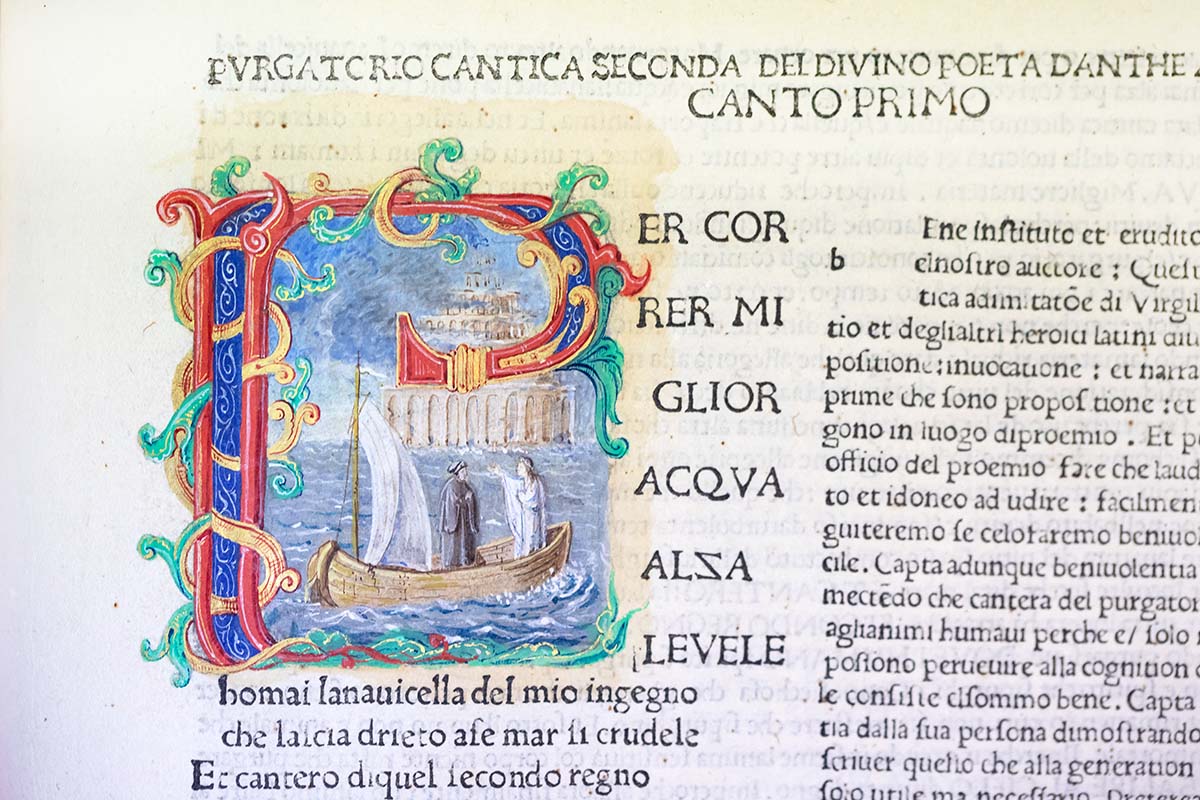 PVRGATORIO CANTICA SECONDA DEL DIVINO POETA DANTHE
CANTO PRIMO
PER COR
RER MI
GLIOR
ACQVA
ALZA
LEVELE
homai lanauicella del mio ingegno
che laſcia drieto aſe mar ſi crudele
Et cantero diquel ſecondo regno
Ene inſtituto et erudito
b elnoſtro auctore : Queſt
tica adimitatōe di Virgil
tio et deglialtri heroici latini diu
poſitione: inuocatione : et narra
prime che ſono propoſitione : et
gono in luogo diproemio : Et p
officio del proemio fare che laud
to et idoneo ad udire : facilmen
guiteremo ſe celofaremo beniuo
cile. Capta adunque beniuolentia
mectēdo che cantera del purgator
aglianimi humaui perche e/ ſolo
poſſono peruenire alla cognition
le conſiſte elſommo bene. Capta
tia dalla ſua perſona dimoſtrando
ſcriuer quello che alla generation
ſolo utile ma neceſſario.